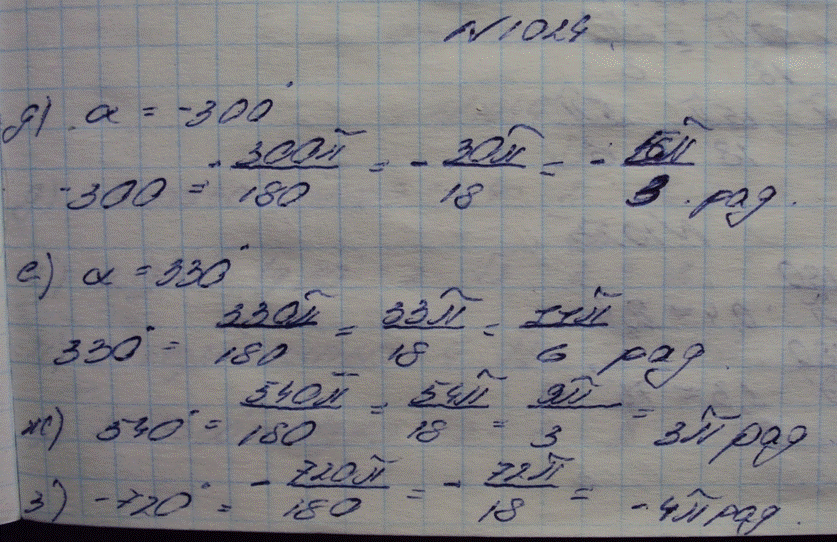 №1024
д) α = -300°
-300 = - 300π/180 = - 30π/18 = - 5π/3 рад.
е) α = 330°
330° = 330π/180 = 33π/18 = 11π/6 рад.
ж) 540° = 540π/180 = 54π/18 = 9π/3 = 3π рад
з) -720° = - 720π/180 = - 72π/18 = -4π рад.